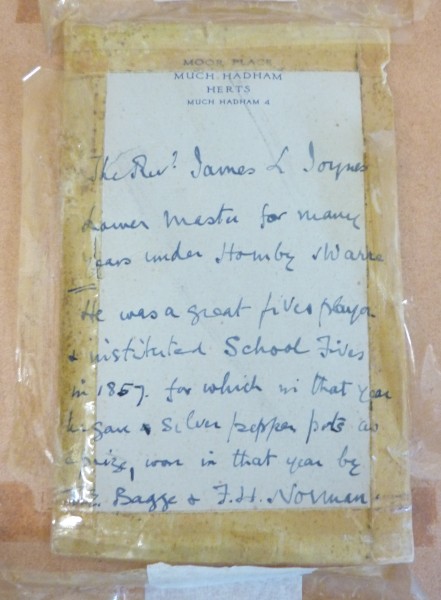 MOOR PLACE
MUCH HADHAM
HERTS
MUCH HADHAM 4
The Revd. James L Joynes
Lower Master for many
years under Hornby & Warre
He was a great fives player
& instituted School Fives
in 1857. for which in that year
he gave 2 silver pepper pots as
a prize, won in that year by
Bagge & F.H. Norman